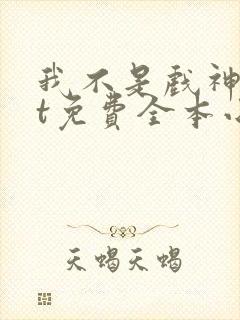 我不是戏神
t免費全本小
天蝎天蝎